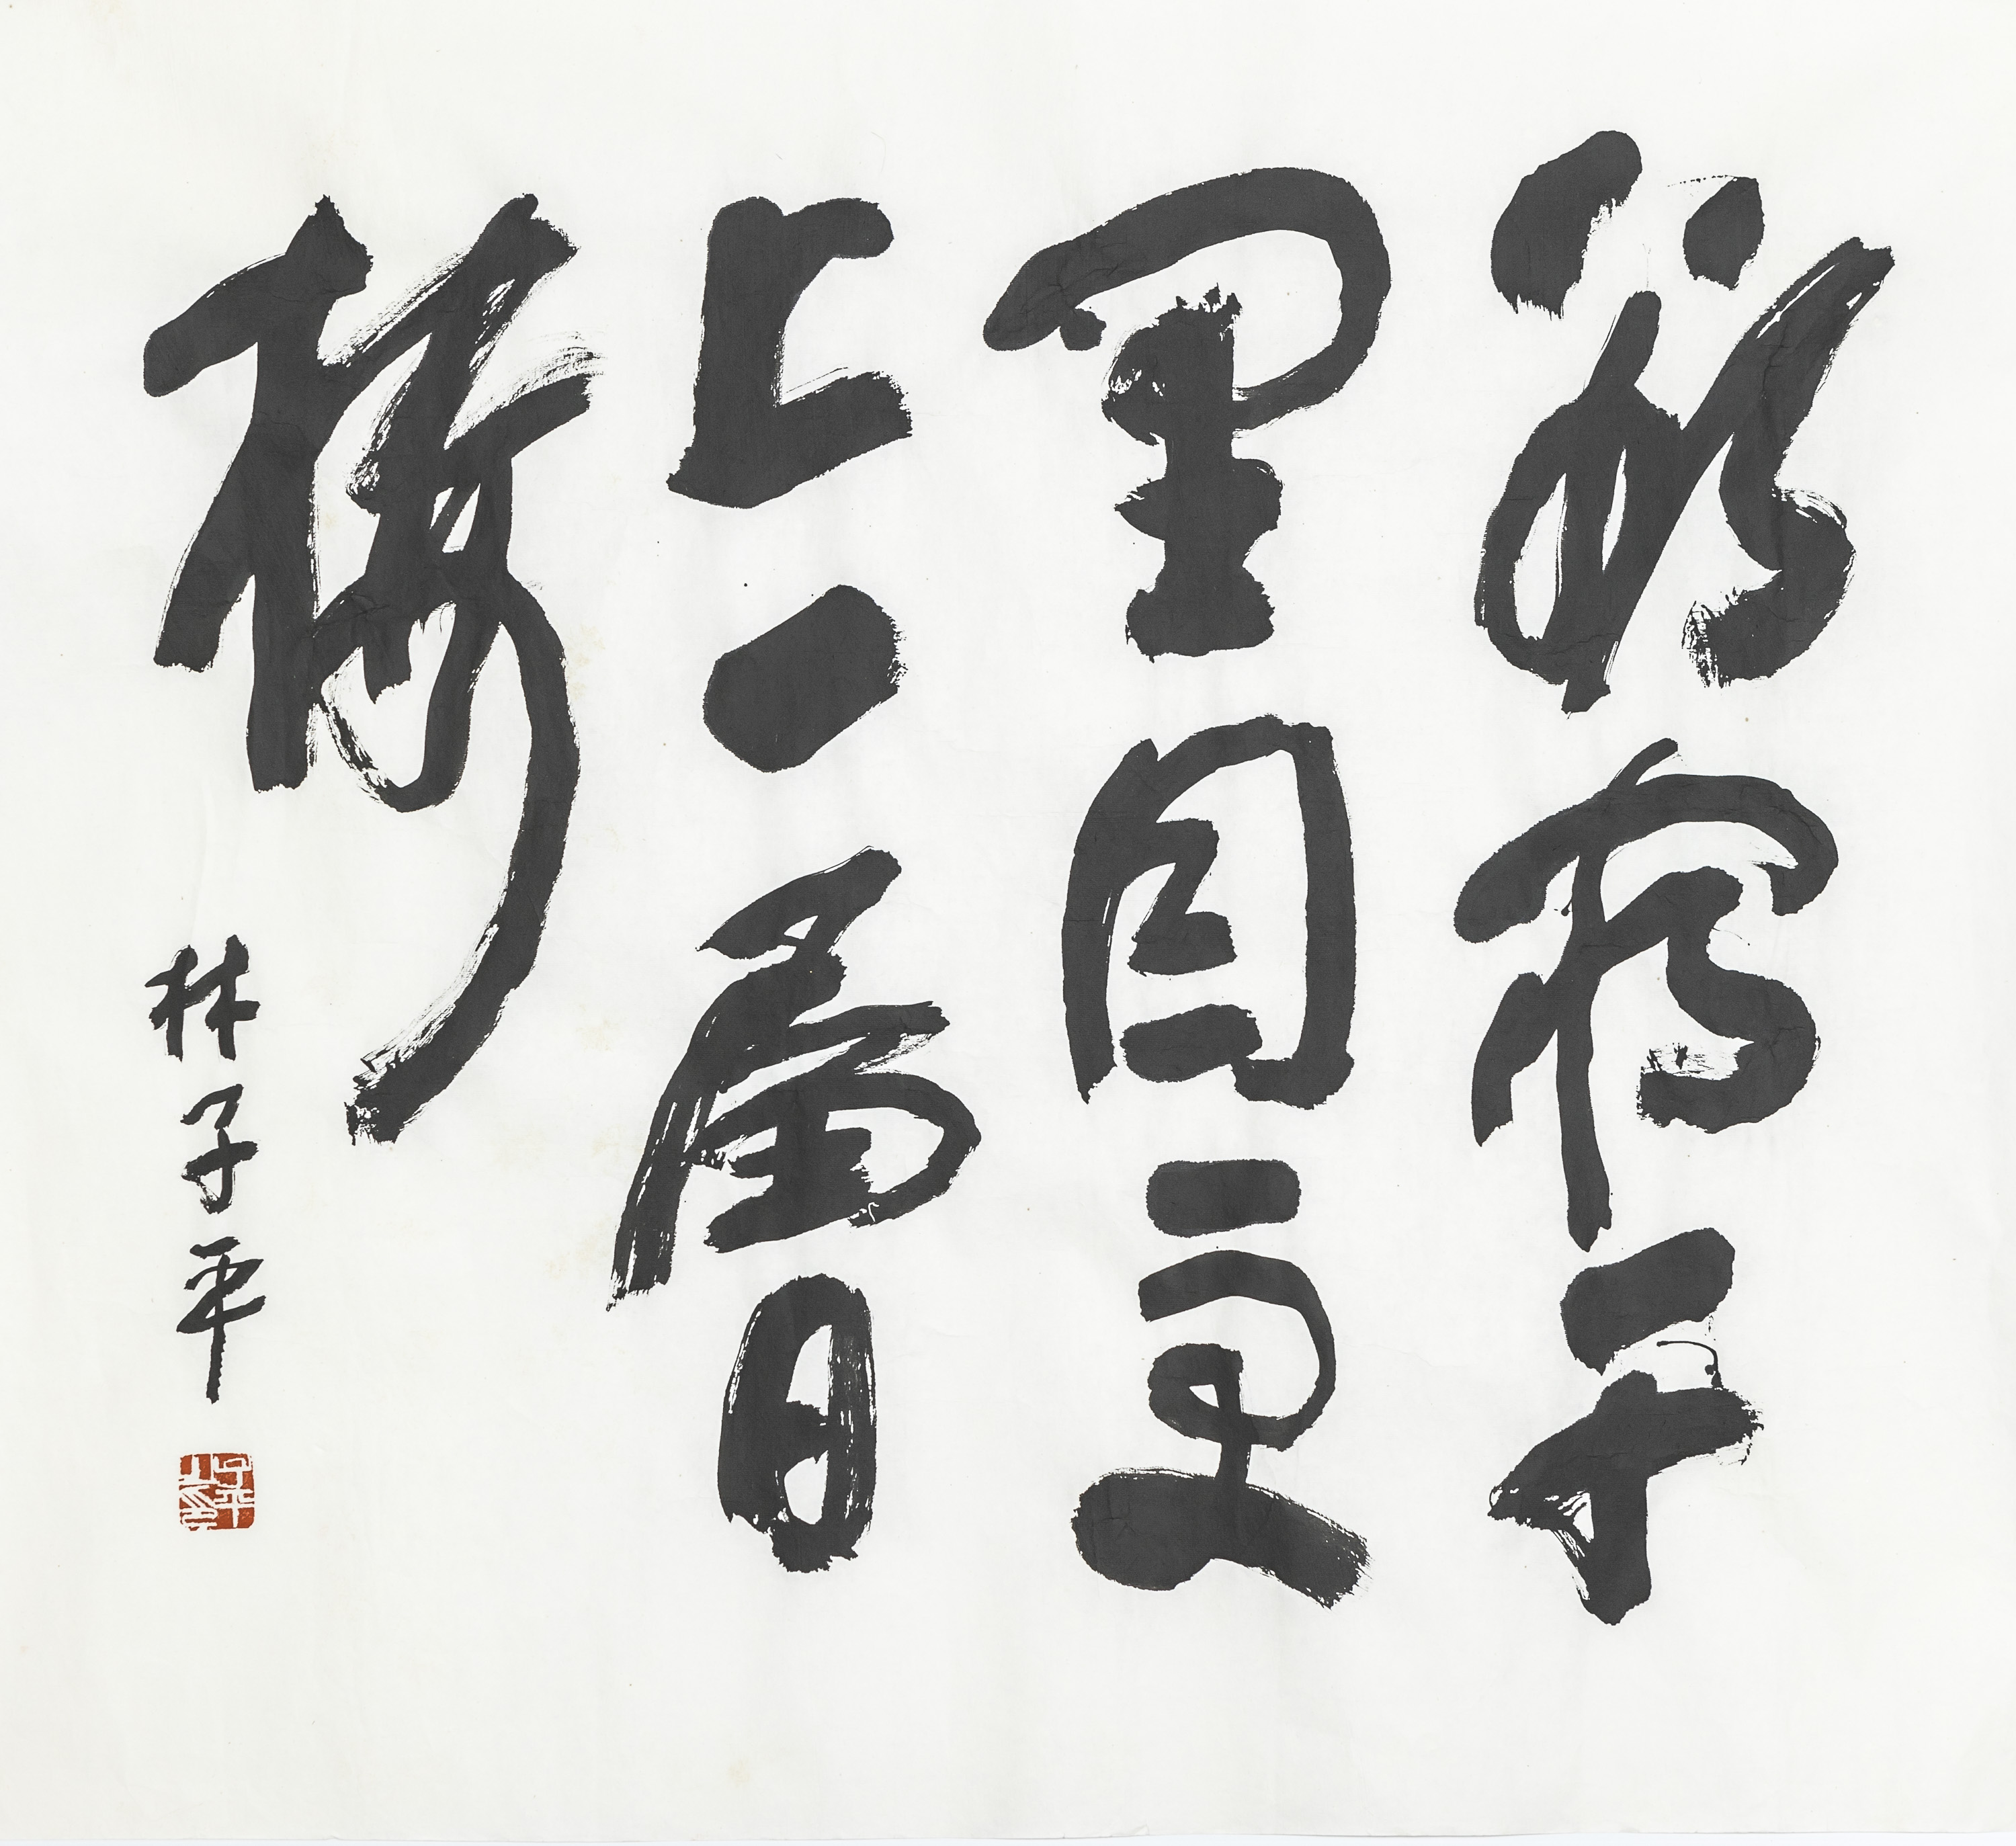 欲窮千
里目更
上一層
樓
林子平
子平之印